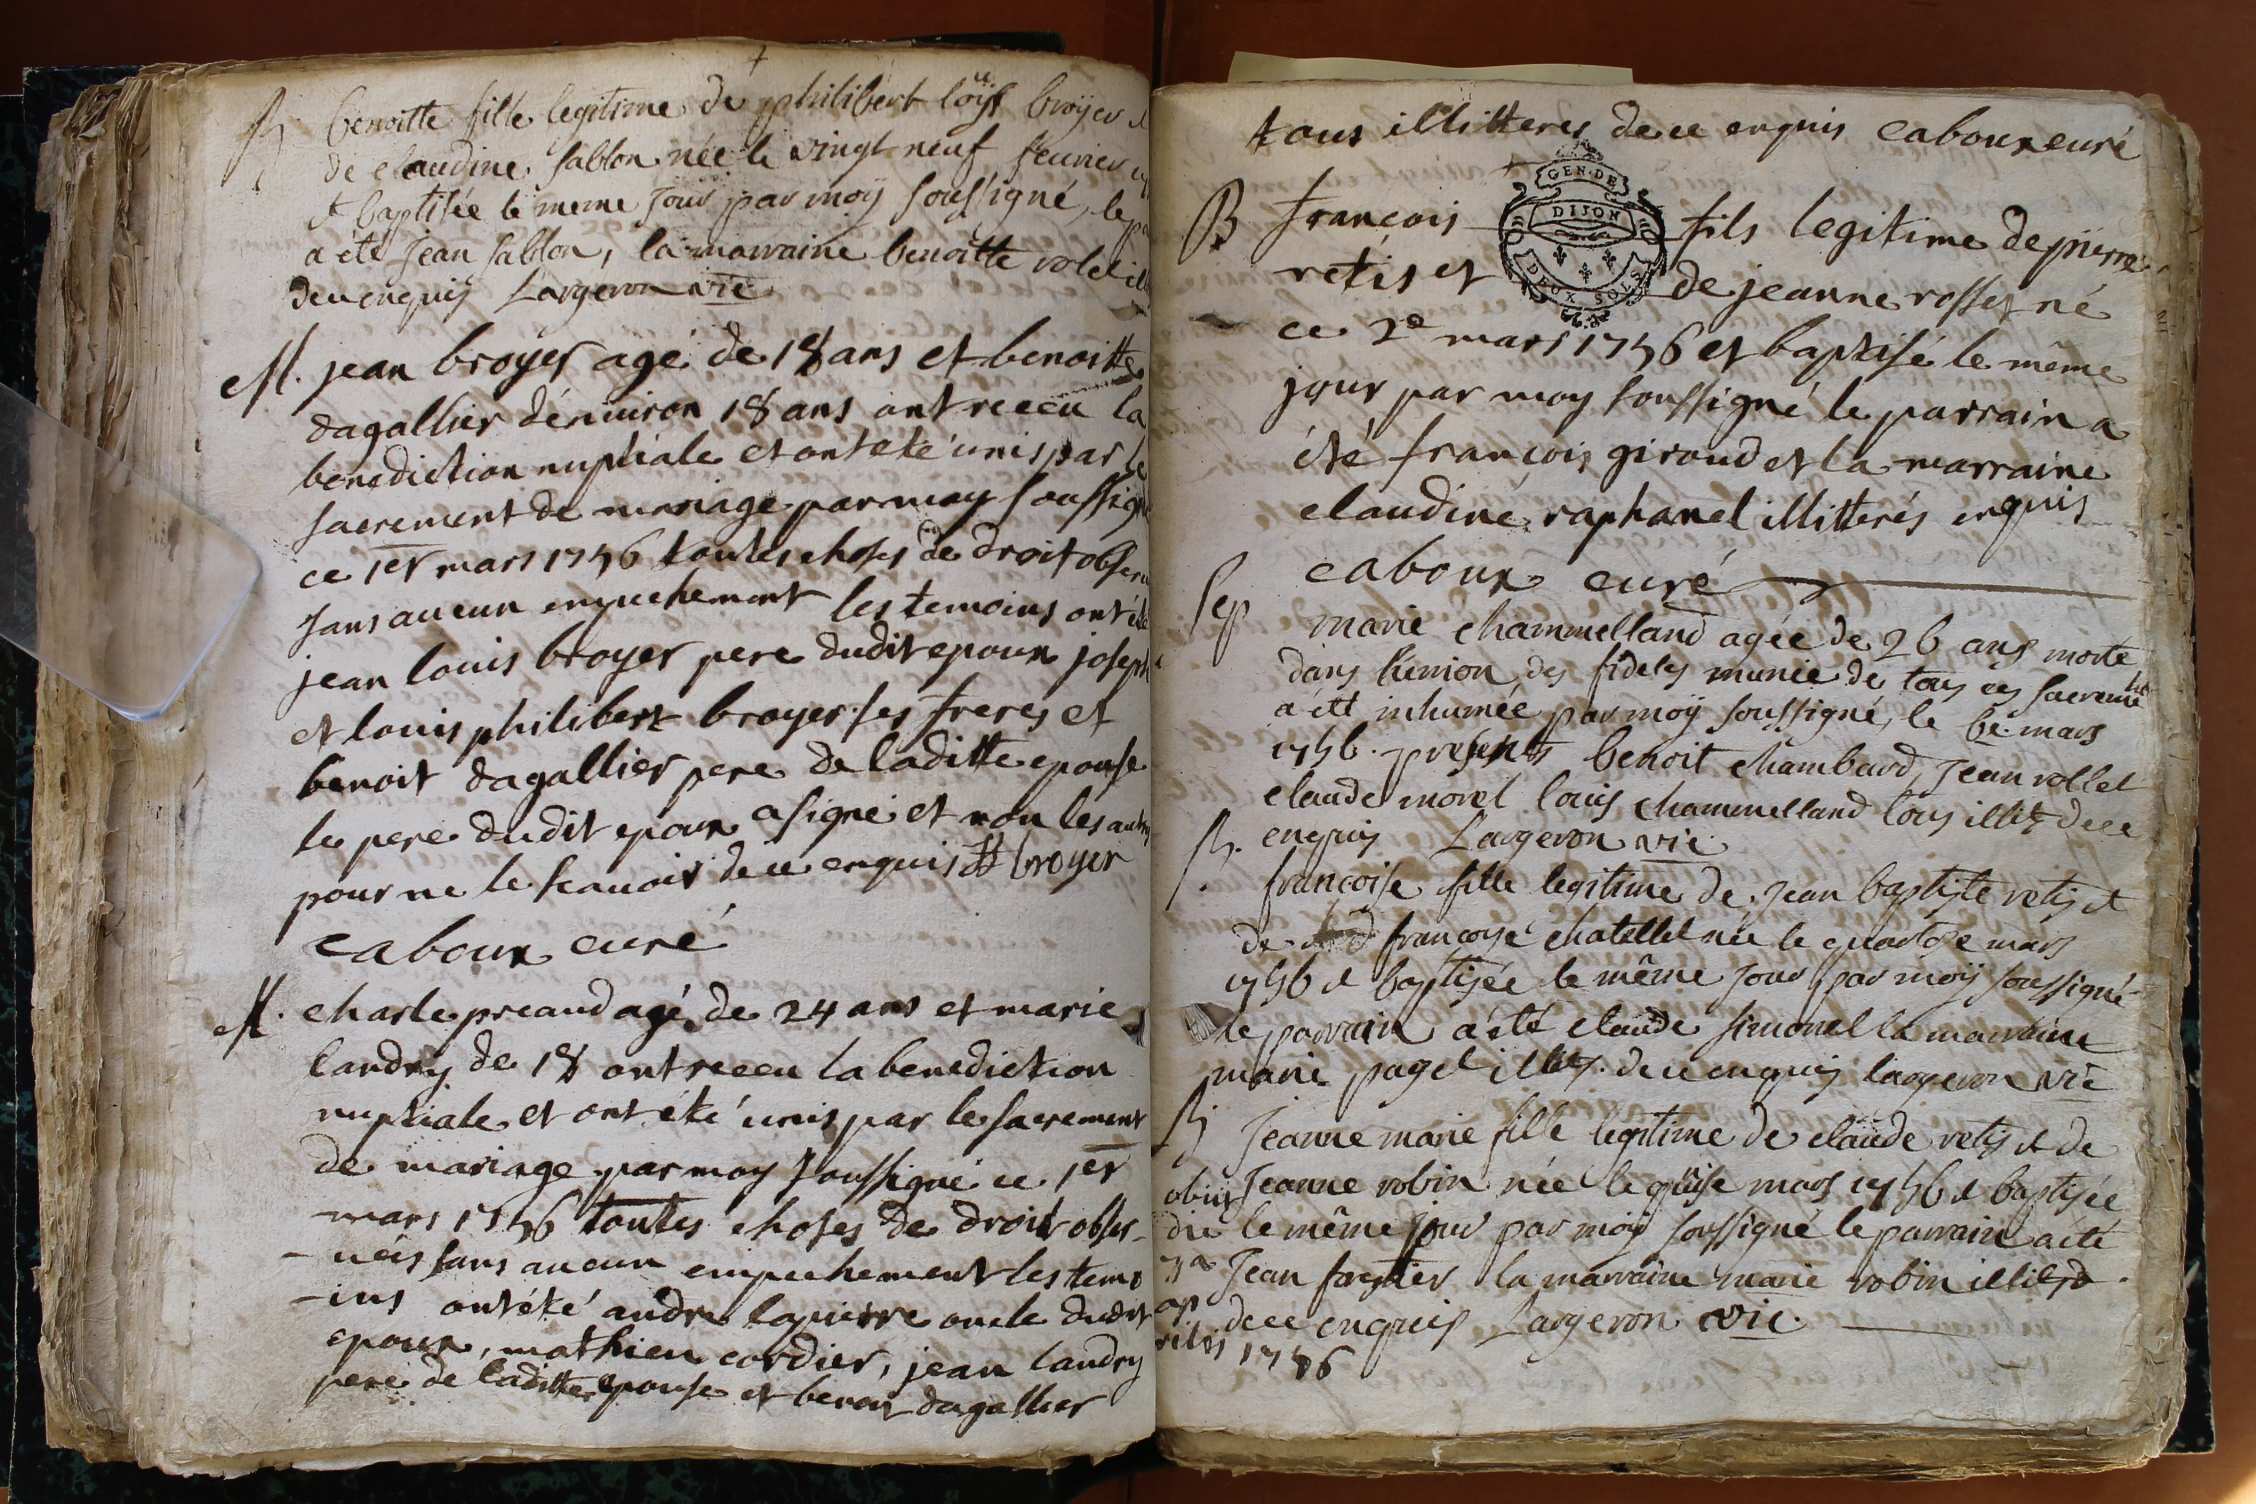 B benoitte fille legitime de philibert loüis broyer et
de claudine sablon née le vingt neuf feurier
et baptisée le meme jour par moy soussigné, le
a été jean sablon, la marraine benoitte rolet
dece enquis Largeron vic
M. jean broyer agé de 18 ans et benoitte
dagallier dénuiron 18 ans ont receu la
benediction nuptiale et ont eté unis par le
sacrement de mariage par moy soussigné
ce 1er mars 1756 toutes choses de droit obser
sans aucun empechement les temoins ont été
jean louis broyer pere dudit epoux joseph
et louis philibert broyer ses freres et
benoit dagallier pere de laditte epouse
le pere dudit epoux a signé et non les autres
pour ne le scauoir de ce enquis broyer
caboux curé
M. charle preaud agé de 24 ans et marie
landry de 18 ont receu la benediction
nuptiale et ont été unis par le sacrement
de mariage par moy soussigné ce 1er
mars 1756 toutes choses de droit obser-
-uéis sans aucun empechement les temo
-ins ont été andre lapierre oncle dudit
epoux, mathieu cordier, jean landry
pere de laditte epouse et benoit dagallier
tous illitteres de ce enquis caboux curé
GEN·DE
DIJON
DEUX SOLS
B françois fils legitime de pierre
retis et de jeanne rosset né
ce 2e mars 1756 et baptisé le même
jour par moy soussigné le parrain a
été françois giroud et la marraine
claudine raphanel illitterés enquis
caboux curé
Sep marie chammelland agée de 26 ans morte
dans l'union des fideles munie de tous ces sacrements
a été inhumée par moÿ soussigné, le 6e mars
1756. presents benoit chambard, jean rollet
claude morel louis chammelland tous illit dece
enquis Largeron vic
B. françoise fille legitime de jean baptiste retis et
de françoise chatellet née le quatorse mars
1756 et baptisée le même jour par moÿ soussigné
le parrain a été claude simonel la marraine
marie paget illit. de ce enquis largeron vic
B Jeanne marie fille legitime de claude retis et de
obiit Jeanne robin née le quinse mars 1756 et baptisée
die le même jour par moÿ soussigné le parrain a été
3a Jean forestier la marraine marie robin illit
ap dece enquis Largeron vic.
rilis 1756